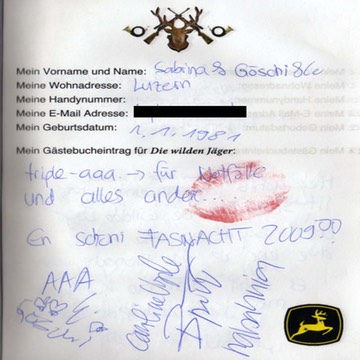 Mein Vorname und Name: Sabina & Göschi & Co
Meine Wohnadresse: Luzern
Meine Handynummer:
Meine E-Mail Adresse:
Mein Geburtsdatum: 1.1.1981
Mein Gästebucheintrag für Die wilden Jäger:
triple-aaa → für Notfälle
und alles ander...
En schöni FASNACHT 2009??
AAA